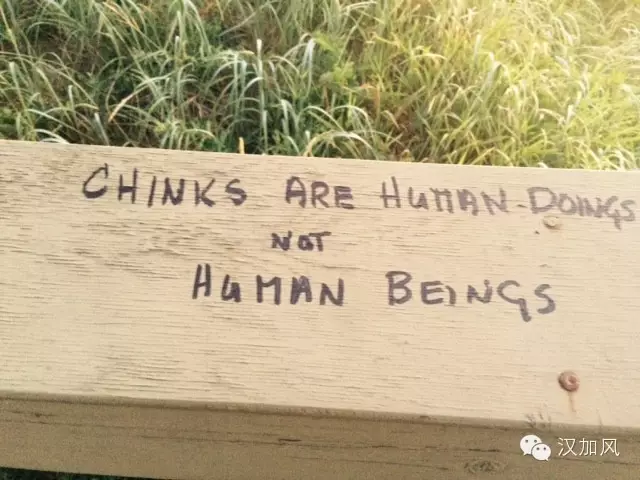 CHINKS ARE HUMAN-DOINGS
NOT
HUMAN BEINGS
汉加风